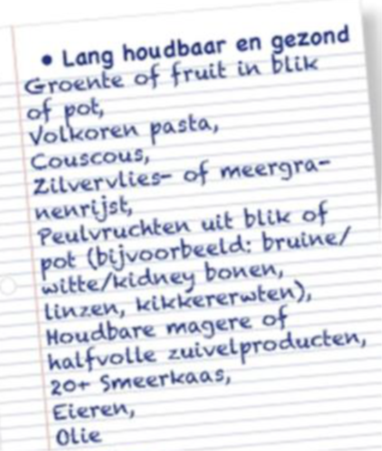 • Lang houdbaar en gezond
Groente of fruit in blik
of pot,
Volkoren pasta,
Couscous,
Zilvervlies- of meergra-
nenrijst,
Peulvruchten uit blik of
pot (bijvoorbeeld: bruine/
witte/kidney bonen,
linzen, kikkererwten),
Houdbare magere of
halfvolle zuivelproducten,
20+ Smeerkaas,
Eieren,
Olie